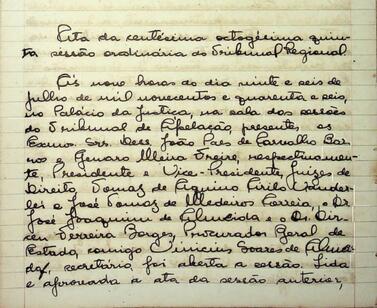 Acta da centésima octogésima quin-
ta sessão ordinária do Tribunal Regional
Às nove horas do dia vinte e seis de
julho de mil novecentos e quarenta e seis,
no Palácio da Justiça, na sala das sessões
do Tribunal de Apelação, presentes os
Exmos. Srs. Dess. João Paes de Carvalho Bar-
ros e Genaro Meira Freire, respectivamen-
te, Presidente e Vice-Presidente, Juizes de
Direito Tomaz de Aquino Cirilo Wander-
lei e José Tomaz de Medeiros Correia, o Dr.
José Joaquim de Almeida e o Dr. Dir-
ceu Ferreira Borges, Procurador Geral do
Estado, comigo Vinicius Soares de Almei-
da, secretário foi aberta a sessão. Lida
e aprovada a ata da sessão anterior,